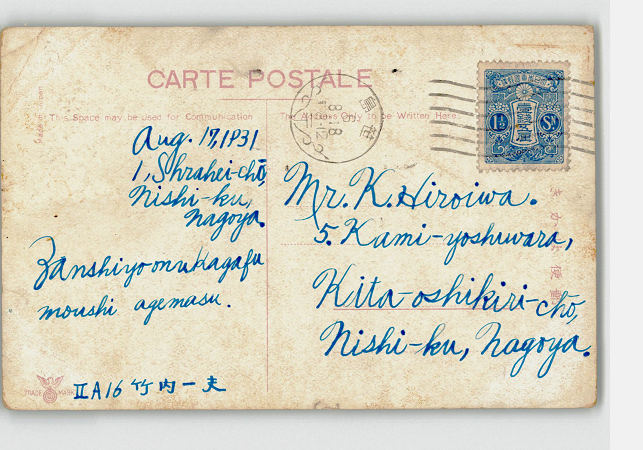 CARTE POSTALE
This Space may be used for Communication
The Address Only to be Written Here
Aug. 17, 1931
1, Shrahei-chō,
Nishi-ku,
Nagoya.
Zanshiyo onukagafu
moushi agemasu.
Mr. K. Hiroiwa.
5. Kami-yoshiwara,
Kita-oshikiri-chō,
Nishi-ku, Nagoya.
TRADE MARK
II A16 竹内一夫
1½ Sn